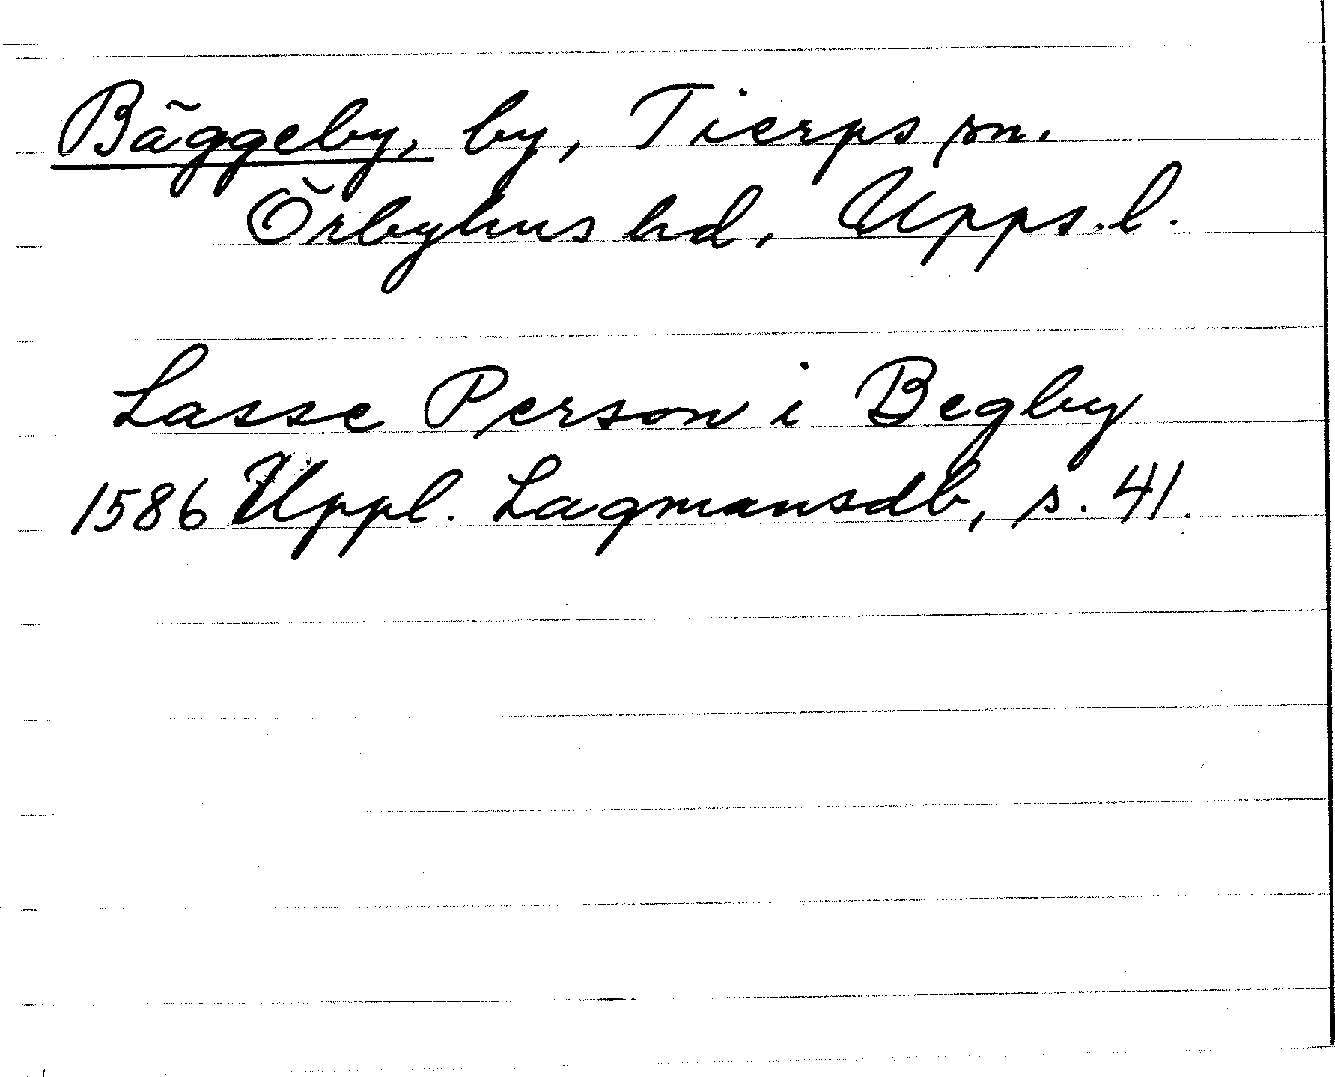 Bäggeby, by, Tierps sn.
Örbyhus hd, Upps. l.
Lasse Person i Begby
1586 Uppl. Lagmansdb, s. 41.